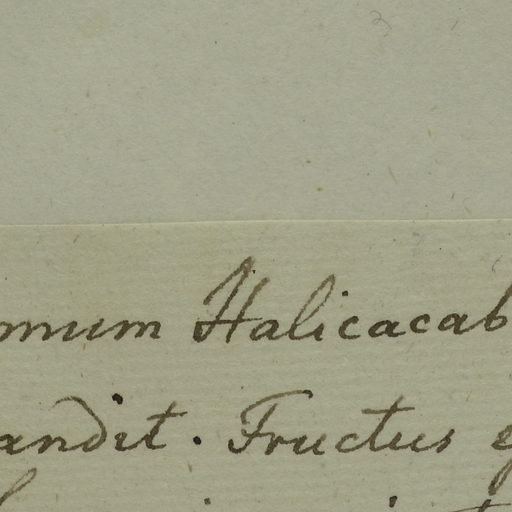 mum Halicacab
andit. Fructus